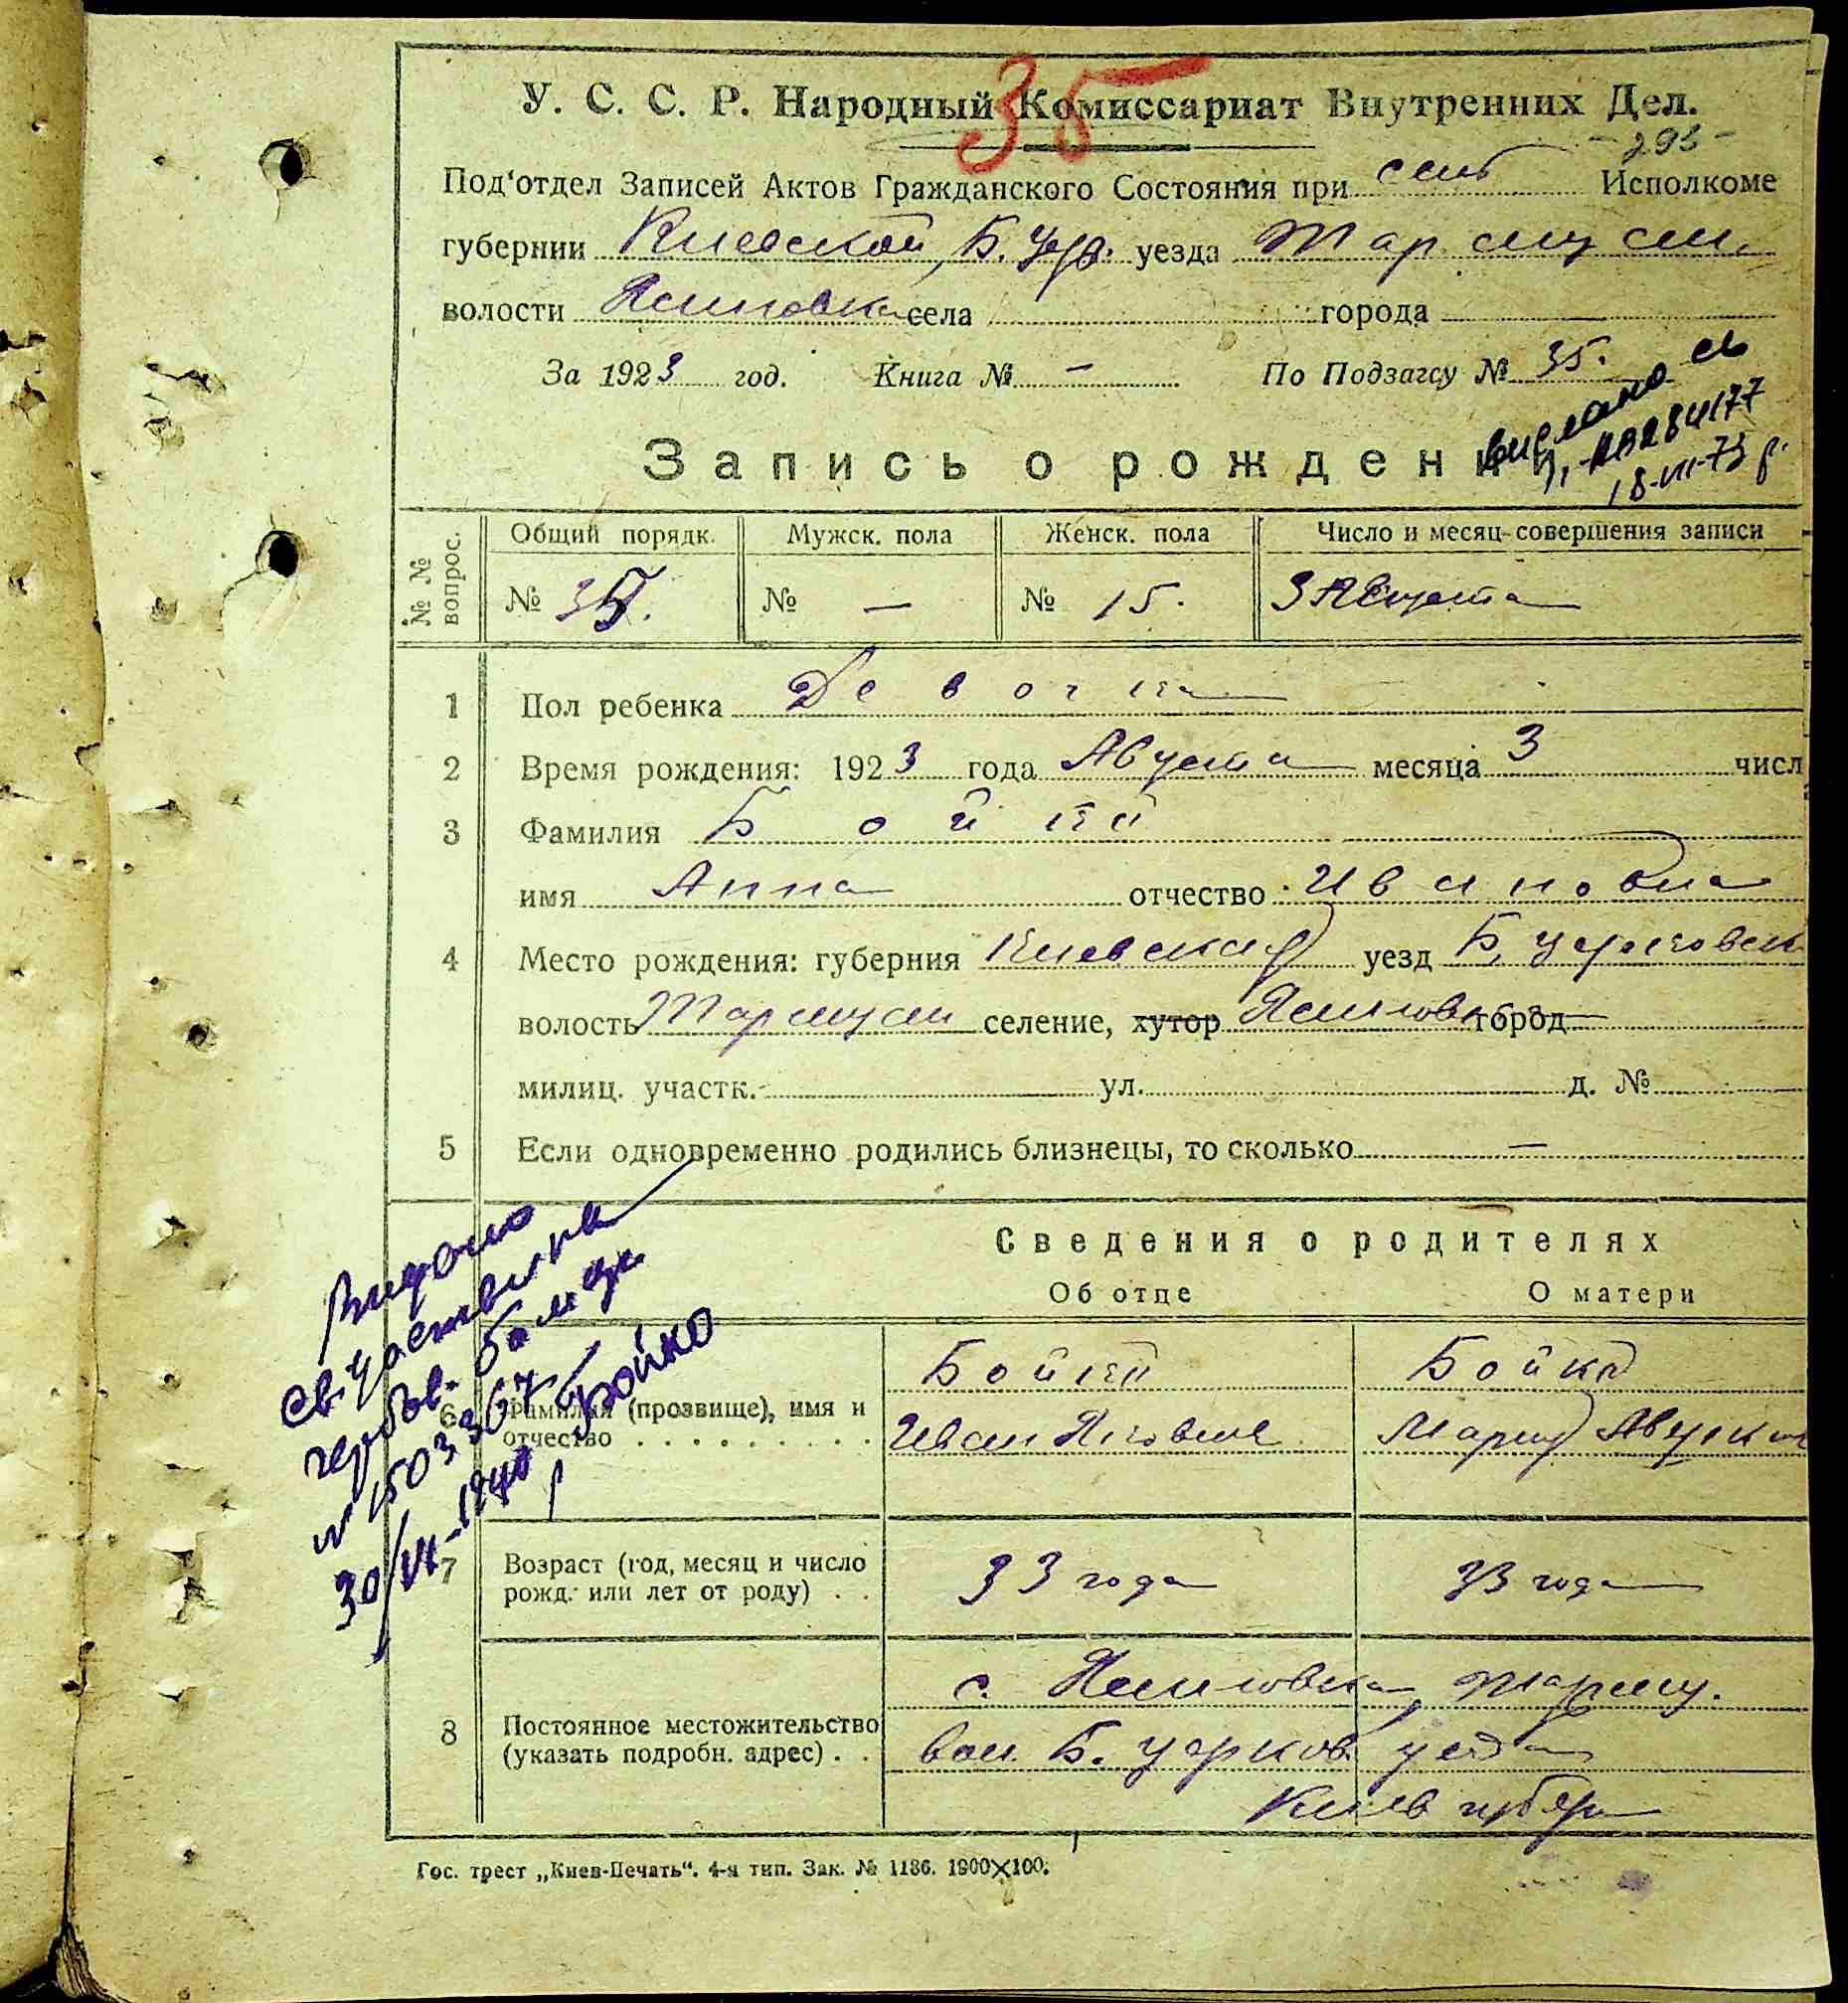 35
У. С. С. Р. Народный Комиссариат Внутренних Дел.
Под‘отдел Записей Актов Гражданского Состояния при Исполкоме
губернии Киевской, Б. Цер. уезда
волости села города
За 1923 год. Книга № — По Подзагсу № 35.
видано
18-VII-73 р.
Запись о рождени
№ № вопрос.
Общий порядк. Мужск. пола Женск. пола Число и месяц совершения записи
№ 35. № — № 15. 3 Августа
1 Пол ребенка Девочка
2 Время рождения: 1923 года Августа месяца 3 числ
3 Фамилия Бойко
имя Анна отчество Ивановна
4 Место рождения: губерния Киевская уезд Б. Церковск
волость селение, хутор город
милиц. участк. ул. д. №
5 Если одновременно родились близнецы, то сколько —
Сведения о родителях
Об отце О матери
Бойко Бойко
6 Фамилия (прозвище), имя и отчество Иван Мария
7 Возраст (год, месяц и число рожд. или лет от роду) 33 года 33 года
8 Постоянное местожительство (указать подробн. адрес)
с.
вол. Б. Церков. уезда
Киев губер
Видано
Бойко
Гос. трест „Киев-Печать“. 4-я тип. Зак. № 1186. 1900×100.